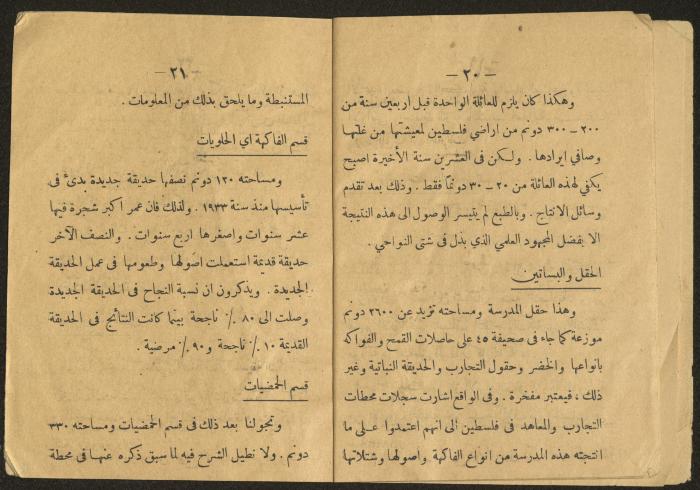 — ٢٠ —
وهكذا كان يلزم للعائلة الواحدة قبل اربعين سنة من
٢٠٠ – ٣٠٠ دونم من اراضي فلسطين لمعيشتها من غلتها
وصافي ايرادها . ولكن فى العشرين سنة الأخيرة اصبح
يكفي لهذه العائلة من ٢٠ – ٣٠ دونمًا فقط . وذلك بعد تقدم
وسائل الانتاج . وبالطبع لم يتيسر الوصول الى هذه النتيجة
الا بفضل المجهود العلمي الذي بذل فى شتى النواحي .
الحقل والبساتين
وهذا حقل المدرسة ومساحته تزيد عن ٢٦٠٠ دونم
موزعة كما جاء فى صحيفة ٤٥ على حاصلات القمح والفواكه
بانواعها والخضر وحقول التجارب والحديقة النباتية وغير
ذلك ، فيعتبر مفخرة . وفى الواقع اشارت سجلات محطات
التجارب والمعاهد فى فلسطين الى انهم اعتمدوا على ما
انتجته هذه المدرسة من انواع الفاكهة واصولها وشتلاتها
— ٢١ —
المستنبطة وما يلحق بذلك من المعلومات .
قسم الفاكهة اي الحلويات
ومساحته ١٢٠ دونم نصفها حديقة جديدة بدئ فى
تأسيسها منذ سنة ١٩٣٣ . ولذلك فان عمر اكبر شجرة فيها
عشر سنوات واصغرها اربع سنوات . والنصف الآخر
حديقة قديمة استعملت اصولها وطعومها فى عمل الحديقة
الجديدة . ويذكرون ان نسبة النجاح فى الحديقة الجديدة
وصلت الى ٨٠ ٪ ناجحة بينما كانت النتائج فى الحديقة
القديمة ١٠ ٪ ناجحة و ٩٠ ٪ مرضية .
قسم الحمضيات
وتجولنا بعد ذلك فى قسم الحمضيات ومساحته ٣٣٠
دونم . ولا نطيل الشرح فيه لما سبق ذكره عنها فى محطة